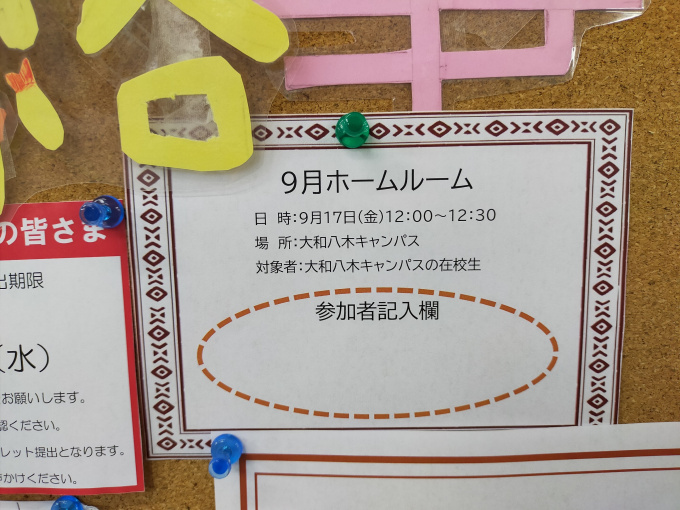 9月ホームルーム
日 時:9月17日(金)12:00~12:30
場 所:大和八木キャンパス
対象者:大和八木キャンパスの在校生
参加者記入欄
の皆さま
出期限
(水)
お願いします。
認ください。
レット提出となります。
かけください。